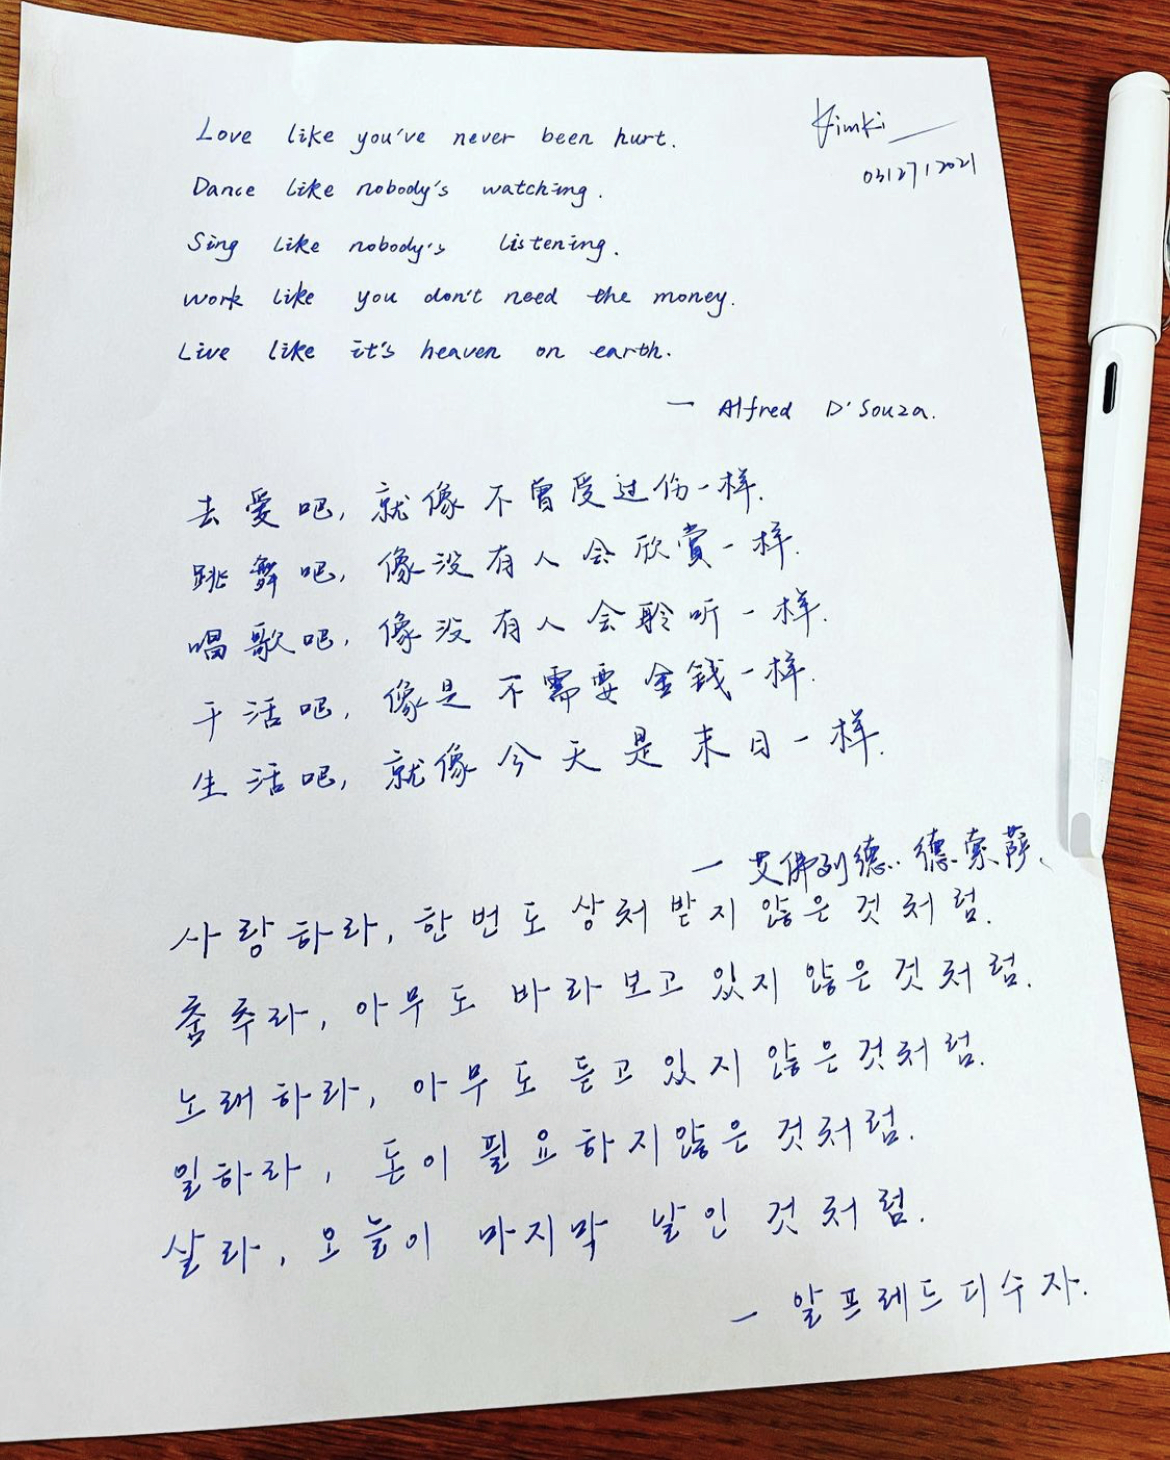 Kimki
0312712021
Love like you've never been hurt.
Dance like nobody's watching.
Sing like nobody's listening.
Work like you don't need the money.
Live like it's heaven on earth.
— Alfred D'Souza.
去爱吧, 就像不曾受过伤一样.
跳舞吧, 像没有人会欣賞一样.
唱歌吧, 像没有人会聆听一样.
干活吧, 像是不需要金錢一样.
生活吧, 就像今天是末日一样.
— 艾佛列德·德索萨、
사랑하라, 한번도 상처받지 않은 것처럼.
춤추라, 아무도 바라보고 있지 않은 것처럼.
노래하라, 아무도 듣고 있지 않은 것처럼.
일하라, 돈이 필요하지 않은 것처럼.
살라, 오늘이 마지막 날인 것처럼.
— 알프레드 디수자.